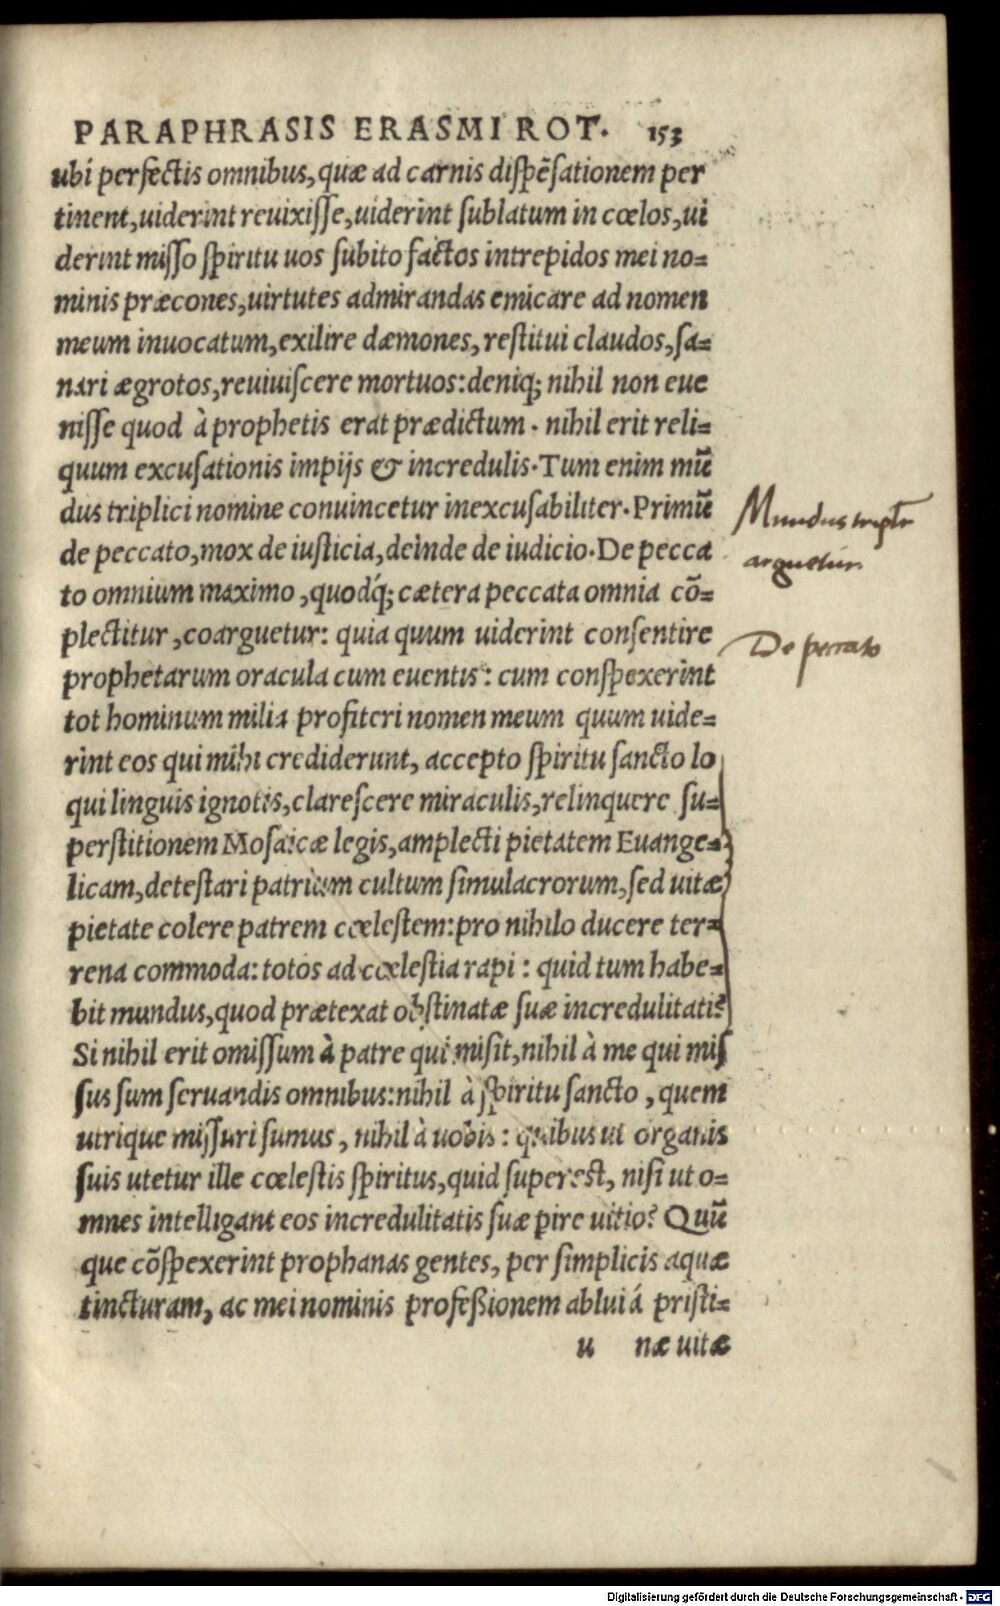 PARAPHRASIS ERASMI ROT. 153
ubi perfectis omnibus, quæ ad carnis dispẽsationem per
tinent, uiderint reuixisse, uiderint sublatum in cœlos, ui
derint misso spiritu uos subito factos intrepidos mei no=
minis præcones, uirtutes admirandas emicare ad nomen
meum inuocatum, exilire dæmones, restitui claudos, sa=
nari ægrotos, reuiuiscere mortuos: deniq; nihil non eue
nisse quod à prophetis erat prædictum. nihil erit reli=
quum excusationis impijs & incredulis. Tum enim mũ
dus triplici nomine conuincetur inexcusabiliter. Primũ
de peccato, mox de iusticia, deinde de iudicio. De pecca
to omnium maximo, quodq́; cætera peccata omnia cõ=
plectitur, coarguetur: quia quum uiderint consentire
prophetarum oracula cum euentis: cum conspexerint
tot hominum milia profiteri nomen meum quum uide=
rint eos qui mihi crediderunt, accepto spiritu sancto lo
qui linguis ignotis, clarescere miraculis, relinquere su=
perstitionem Mosaicæ legis, amplecti pietatem Euange=
licam, detestari patrium cultum simulacrorum, sed uitæ
pietate colere patrem cœlestem: pro nihilo ducere ter=
rena commoda: totos ad cœlestia rapi: quid tum habe=
bit mundus, quod prætexat obstinatæ suæ incredulitati?
Si nihil erit omissum à patre qui misit, nihil à me qui mis
sus sum seruandis omnibus: nihil à spiritu sancto, quem
utrique missuri sumus, nihil à uobis: quibus ut organis
suis utetur ille cœlestis spiritus, quid superest, nisi ut o=
mnes intelligant eos incredulitatis suæ pire uitio? Quũ
que cõspexerint prophanas gentes, per simplicis aquæ
tincturam, ac mei nominis professionem ablui á pristi=
u næ uitæ
Mundus triplr
arguetur
De peccato
Digitalisierung gefördert durch die Deutsche Forschungsgemeinschaft - DFG